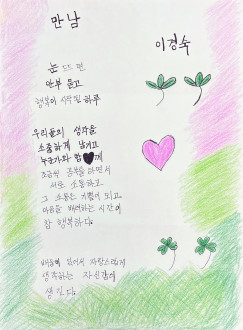 만남
이경숙
눈 뜨면
안부 묻고
행복이 시작된 하루
우리들의 생각을
소중하게 남기고
누군가와 함께
조금씩 공부를 하면서
서로 소통하고
그 소통은 기쁨이 되고
마음을 배려하는 시간이
참 행복하다.
배움에 있어서 자랑스럽게
생각하는 자신감이
생긴다.